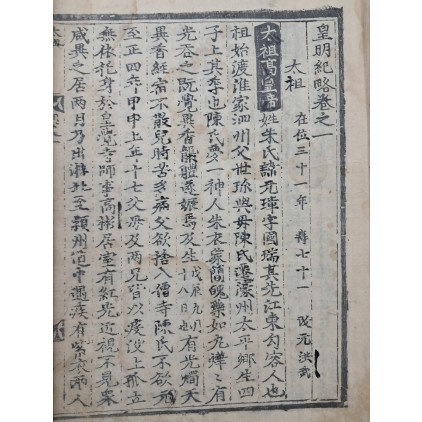 皇明紀略卷之一
太祖 在位三十一年 壽七十一 改元洪武
太祖高皇帝姓朱氏諱元璋字國瑞其先江東句容人也
祖始渡淮家泗州父世珍與母陳氏遷濠州太平鄉生四
子上其季也陳氏夢一神人朱衣象簡餽藥如丸燁燁有
光吞之既覺異香體遂娠焉及生戊辰九月十八日也有光燭天
異香經宿不散兒時苦多病父欲捨入僧寺陳氏不欲
至正四年甲申上年十七父母及兩兄皆以疫沒上孤
無依托身於皇覺寺師室高彬居室有紅光近視不見衆
咸異之居兩月乃出淮北至潁州道中遇疾有紫衣兩人